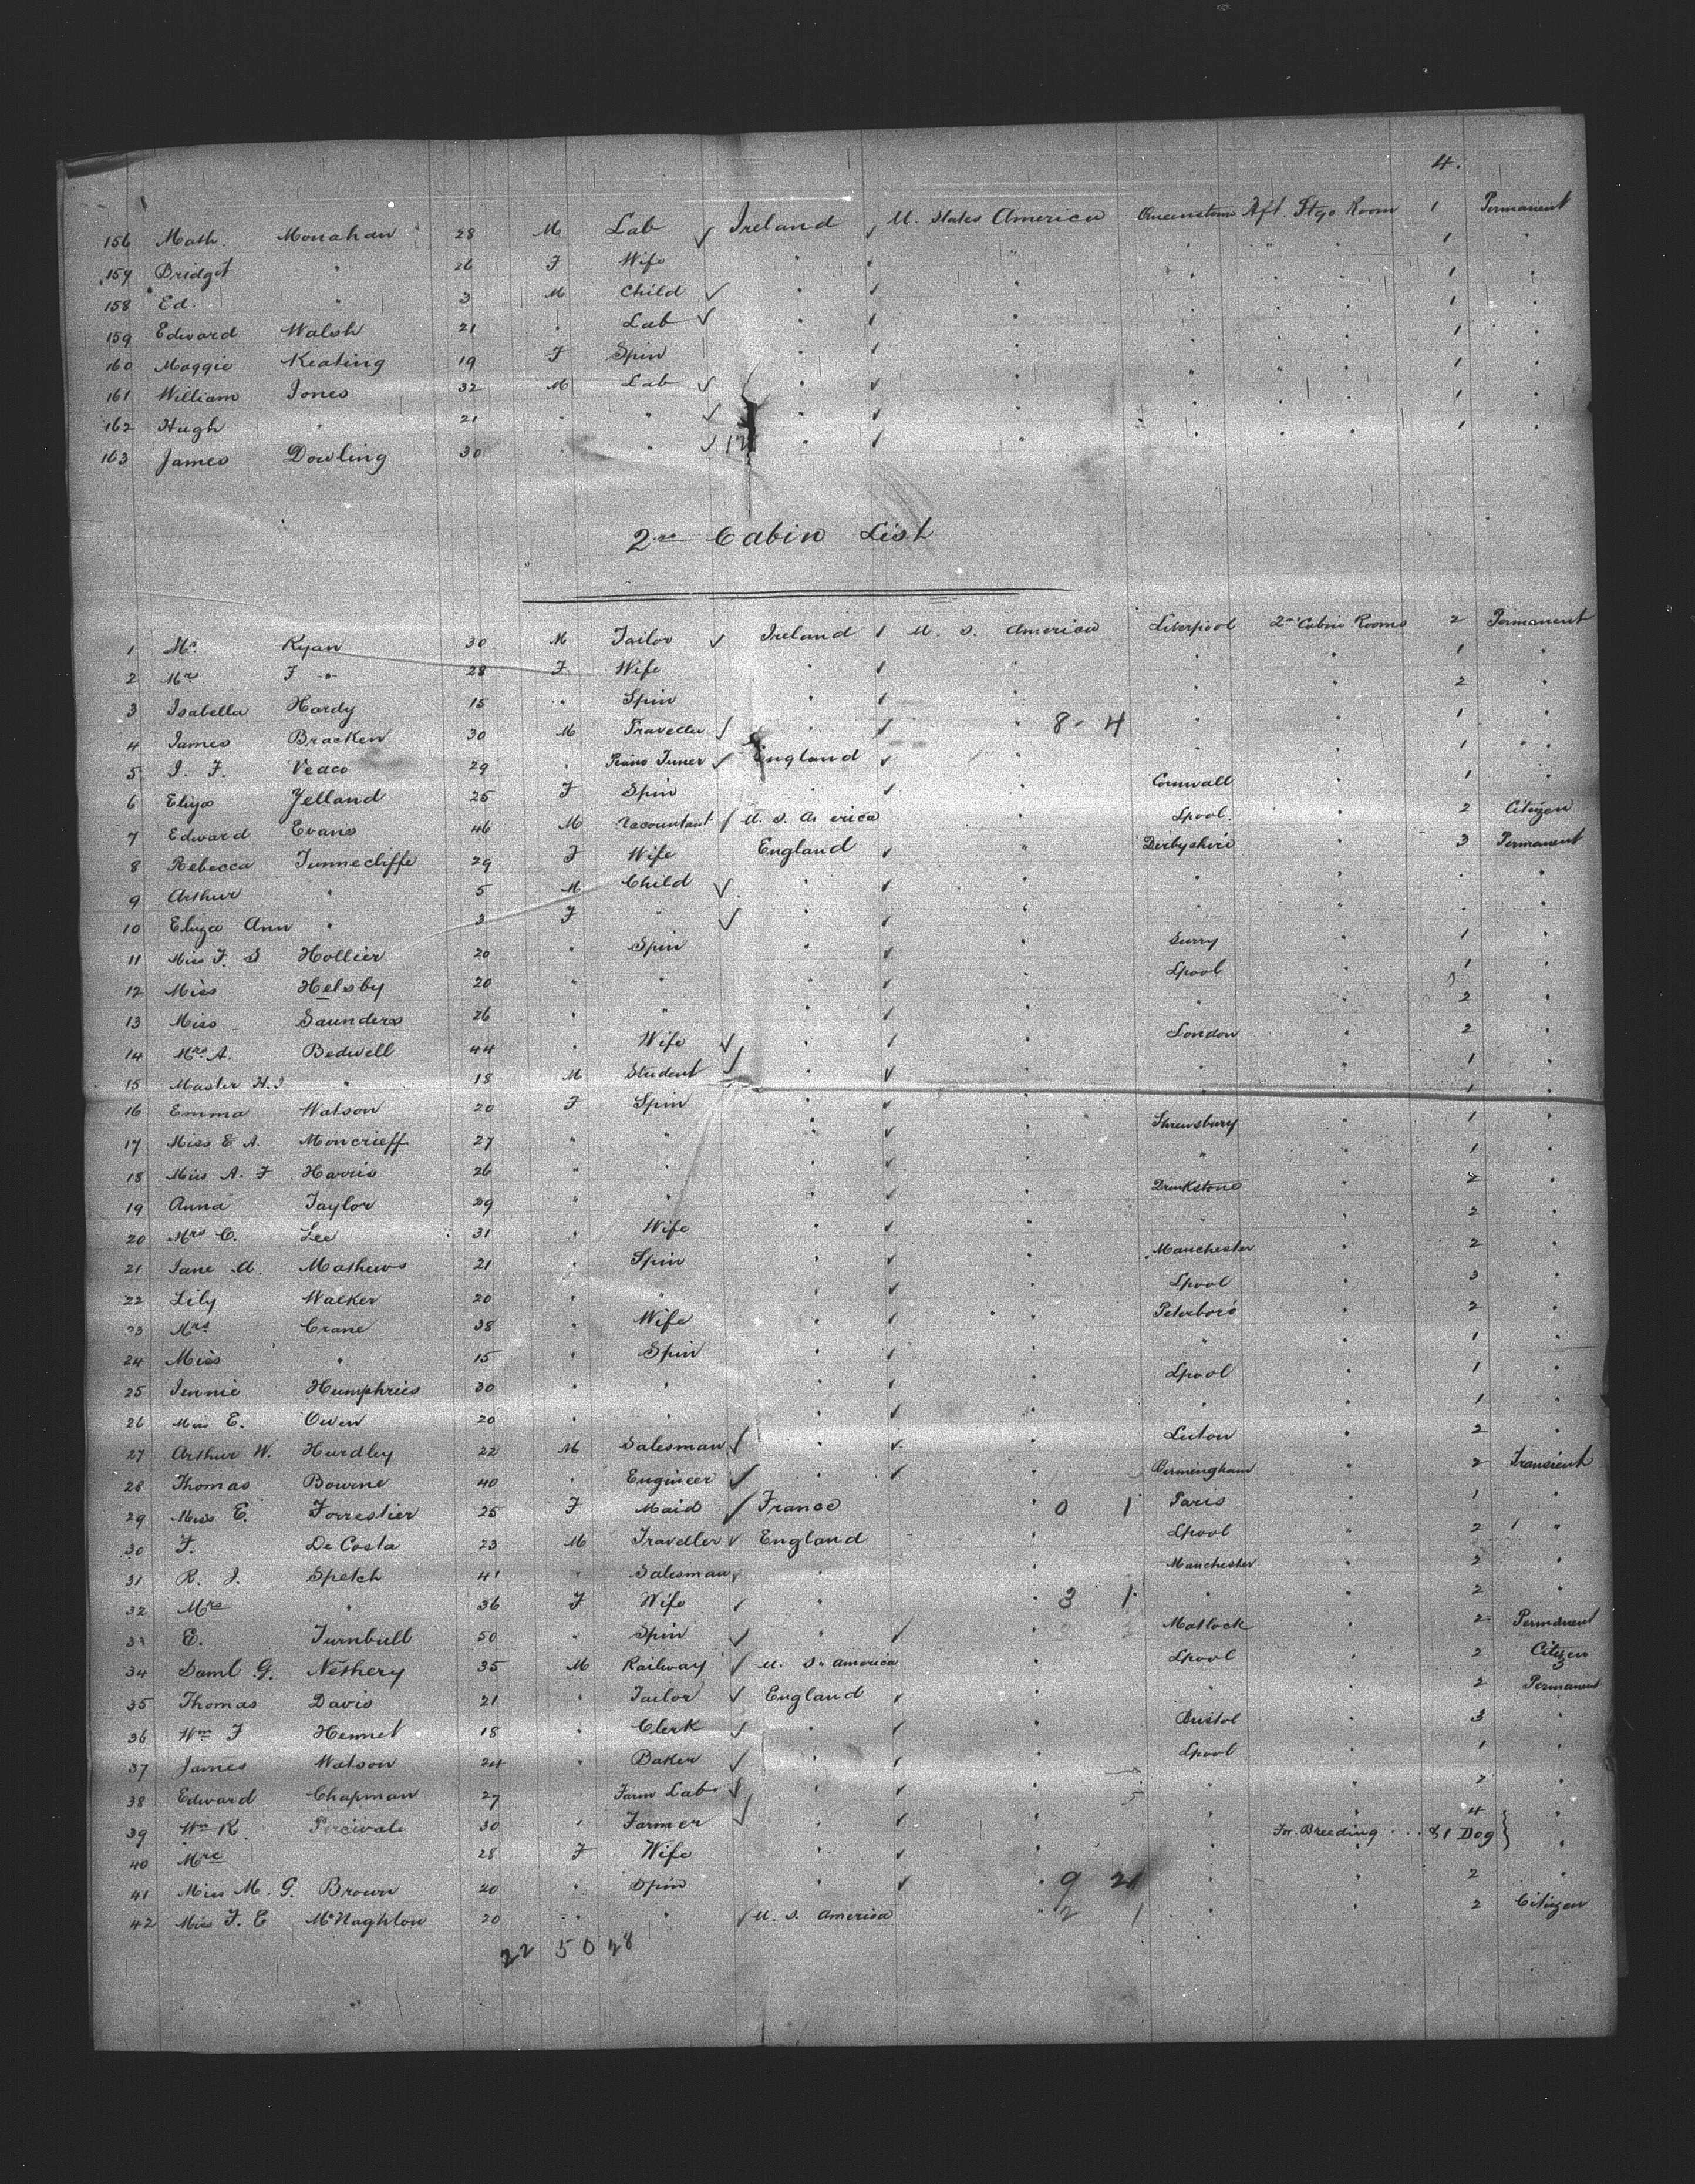 4.
156 Math. Monahan 28 M Lab Ireland U. States America Queenstown Aft. Stge Room 1 Permanent
157 Bridget " 26 F Wife " " " " " 1 "
158 Ed. " 3 M Child " " " " " 1 "
159 Edward Walsh 21 " Lab " " " " " 1 "
160 Maggie Keating 19 F Spin " " " " " 1 "
161 William Jones 32 M Lab " " " " " 1 "
162 Hugh " 21 " " " " " " " 1 "
163 James Dowling 30 " " " " " " " 1 "
2nd Cabin List
1 Mr. Ryan 30 M Tailor Ireland U. S. America Liverpool 2nd Cabin Rooms 2 Permanent
2 Mrs F " 28 F Wife " " " " 1 "
3 Isabella Hardy 15 " Spin " " " " 2 "
4 James Bracken 30 M Traveller " " 8 - 4 " " 1 "
5 J. F. Veaco 29 " Piano Tuner England " " " 1 "
6 Eliza Jelland 25 F Spin " " Cornwall " 1 "
7 Edward Evans 46 M Accountant U. S. America " Lpool. " 2 Citizen
8 Rebecca Tunnecliffe 29 F Wife England " Derbyshire " 3 Permanent
9 Arthur " 5 M Child " " " " " "
10 Eliza Ann " 3 F " " " " " " "
11 Miss F. S Hollier 20 " Spin " " Surry " 1 "
12 Miss Helsby 20 " " " " Lpool " 1 "
13 Miss Saunders 26 " " " " " " 2 "
14 Mrs A. Bedwell 44 " Wife " " London " 2 "
15 Master H. J " 18 M Student " " " " 1 "
16 Emma Watson 20 F Spin " " " " 1 "
17 Miss E A. Moncrieff 27 " " " " Shrewsbury " 1 "
18 Miss A. F Harris 26 " " " " " " 1 "
19 Anna Taylor 29 " " " " Drinkstone " 2 "
20 Mrs C. Lee 31 " Wife " " " " 2 "
21 Jane A. Mathews 21 " Spin " " Manchester " 2 "
22 Lily Walker 20 " " " " Lpool " 3 "
23 Mrs Crane 38 " Wife " " Peterboro " 2 "
24 Miss " 15 " Spin " " " " 1 "
25 Jennie Humphries 30 " " " " Lpool " 1 "
26 Miss E. Owen 20 " " " " " " 1 "
27 Arthur W. Hurdley 22 M Salesman " " Luton " 2 "
28 Thomas Bourne 40 " Engineer " " Birmingham " 2 Transient
29 Miss E. Forrestier 25 F Maid France " 0 1 Paris " 1 "
30 F. De Costa 23 M Traveller England " Lpool " 2 "
31 R. J. Spetch 41 " Salesman " " Manchester " 2 "
32 Mrs " 36 F Wife " " 3 1 " " 2 "
33 E. Turnbull 50 " Spin " " Matlock " 2 Permanent
34 Saml G. Nethery 35 M Railway U. S. America " Lpool " 2 Citizen
35 Thomas Davis 21 " Tailor England " " " 2 Permanent
36 Wm F Hennet 18 " Clerk " " Bristol " 3 "
37 James Watson 24 " Baker " " Lpool " 1 "
38 Edward Chapman 27 " Farm Lab " " " " 2 "
39 Wm R. Percivale 30 " Farmer " " " " 4 "
For Breeding . . . & 1 Dog
40 Mrs 28 F Wife " " " " "
41 Miss M. G. Brown 20 " Spin " " 9 21 " " 2 "
42 Miss F. E McNaghton 20 " " U. S. America " 2 1 " " 2 Citizen
22 50 28